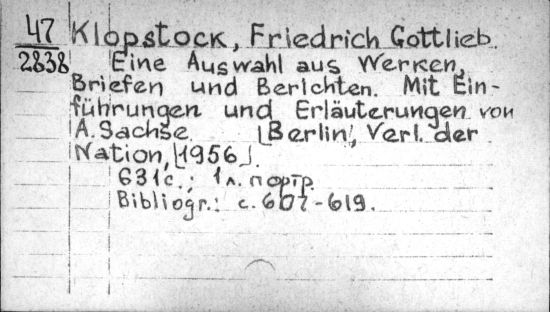 47 Klopstock, Friedrich Gottlieb.
2838 Eine Auswahl aus Werken,
Briefen und Berichten. Mit Ein-
führungen und Erläuterungen von
A. Sachse. [Berlin], Verl. der
Nation, [1956].
631 с.; 1 л. портр.
Bibliogr.: с. 607-619.